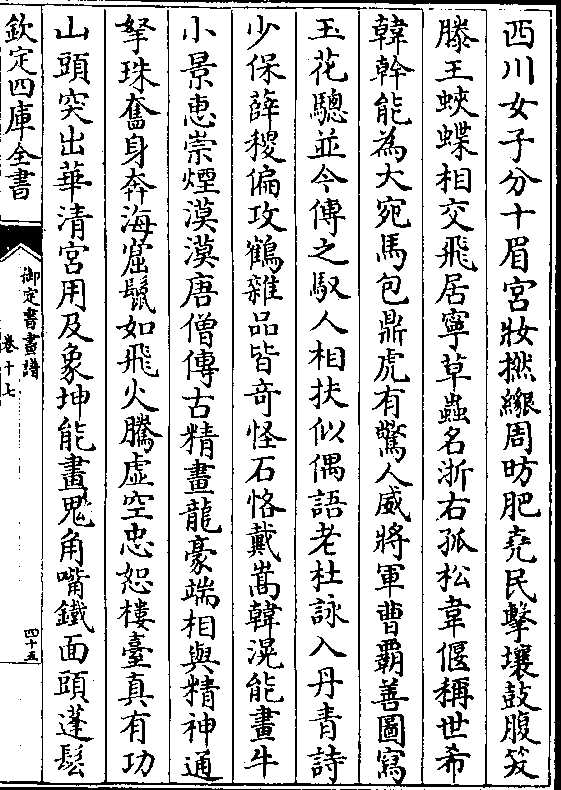 西川女子分十眉宮妝撚線周昉肥堯民擊壤鼓腹笑
滕王蛺蝶相交飛居寧草蟲名浙右孤松韋偃稱世希
韓幹能為大宛馬包鼎虎有驚人威將軍曹霸善圖寫
玉花驄並今傳之馭人相扶似偶語老杜詠入丹青詩
少保薛稷偏攻鶴雜品皆奇怪石恪戴嵩韓滉能畫牛
小景惠崇煙漠漠唐僧傳古精畫龍豪端相與精神通
拏珠奮身奔海窟鬣如飛火騰虛空忠恕樓臺真有功
山頭突出華清宮用及象坤能畫鬼角嘴鐵面頭蓬鬆
欽定四庫全書
御定書畫譜
卷十七
四十五